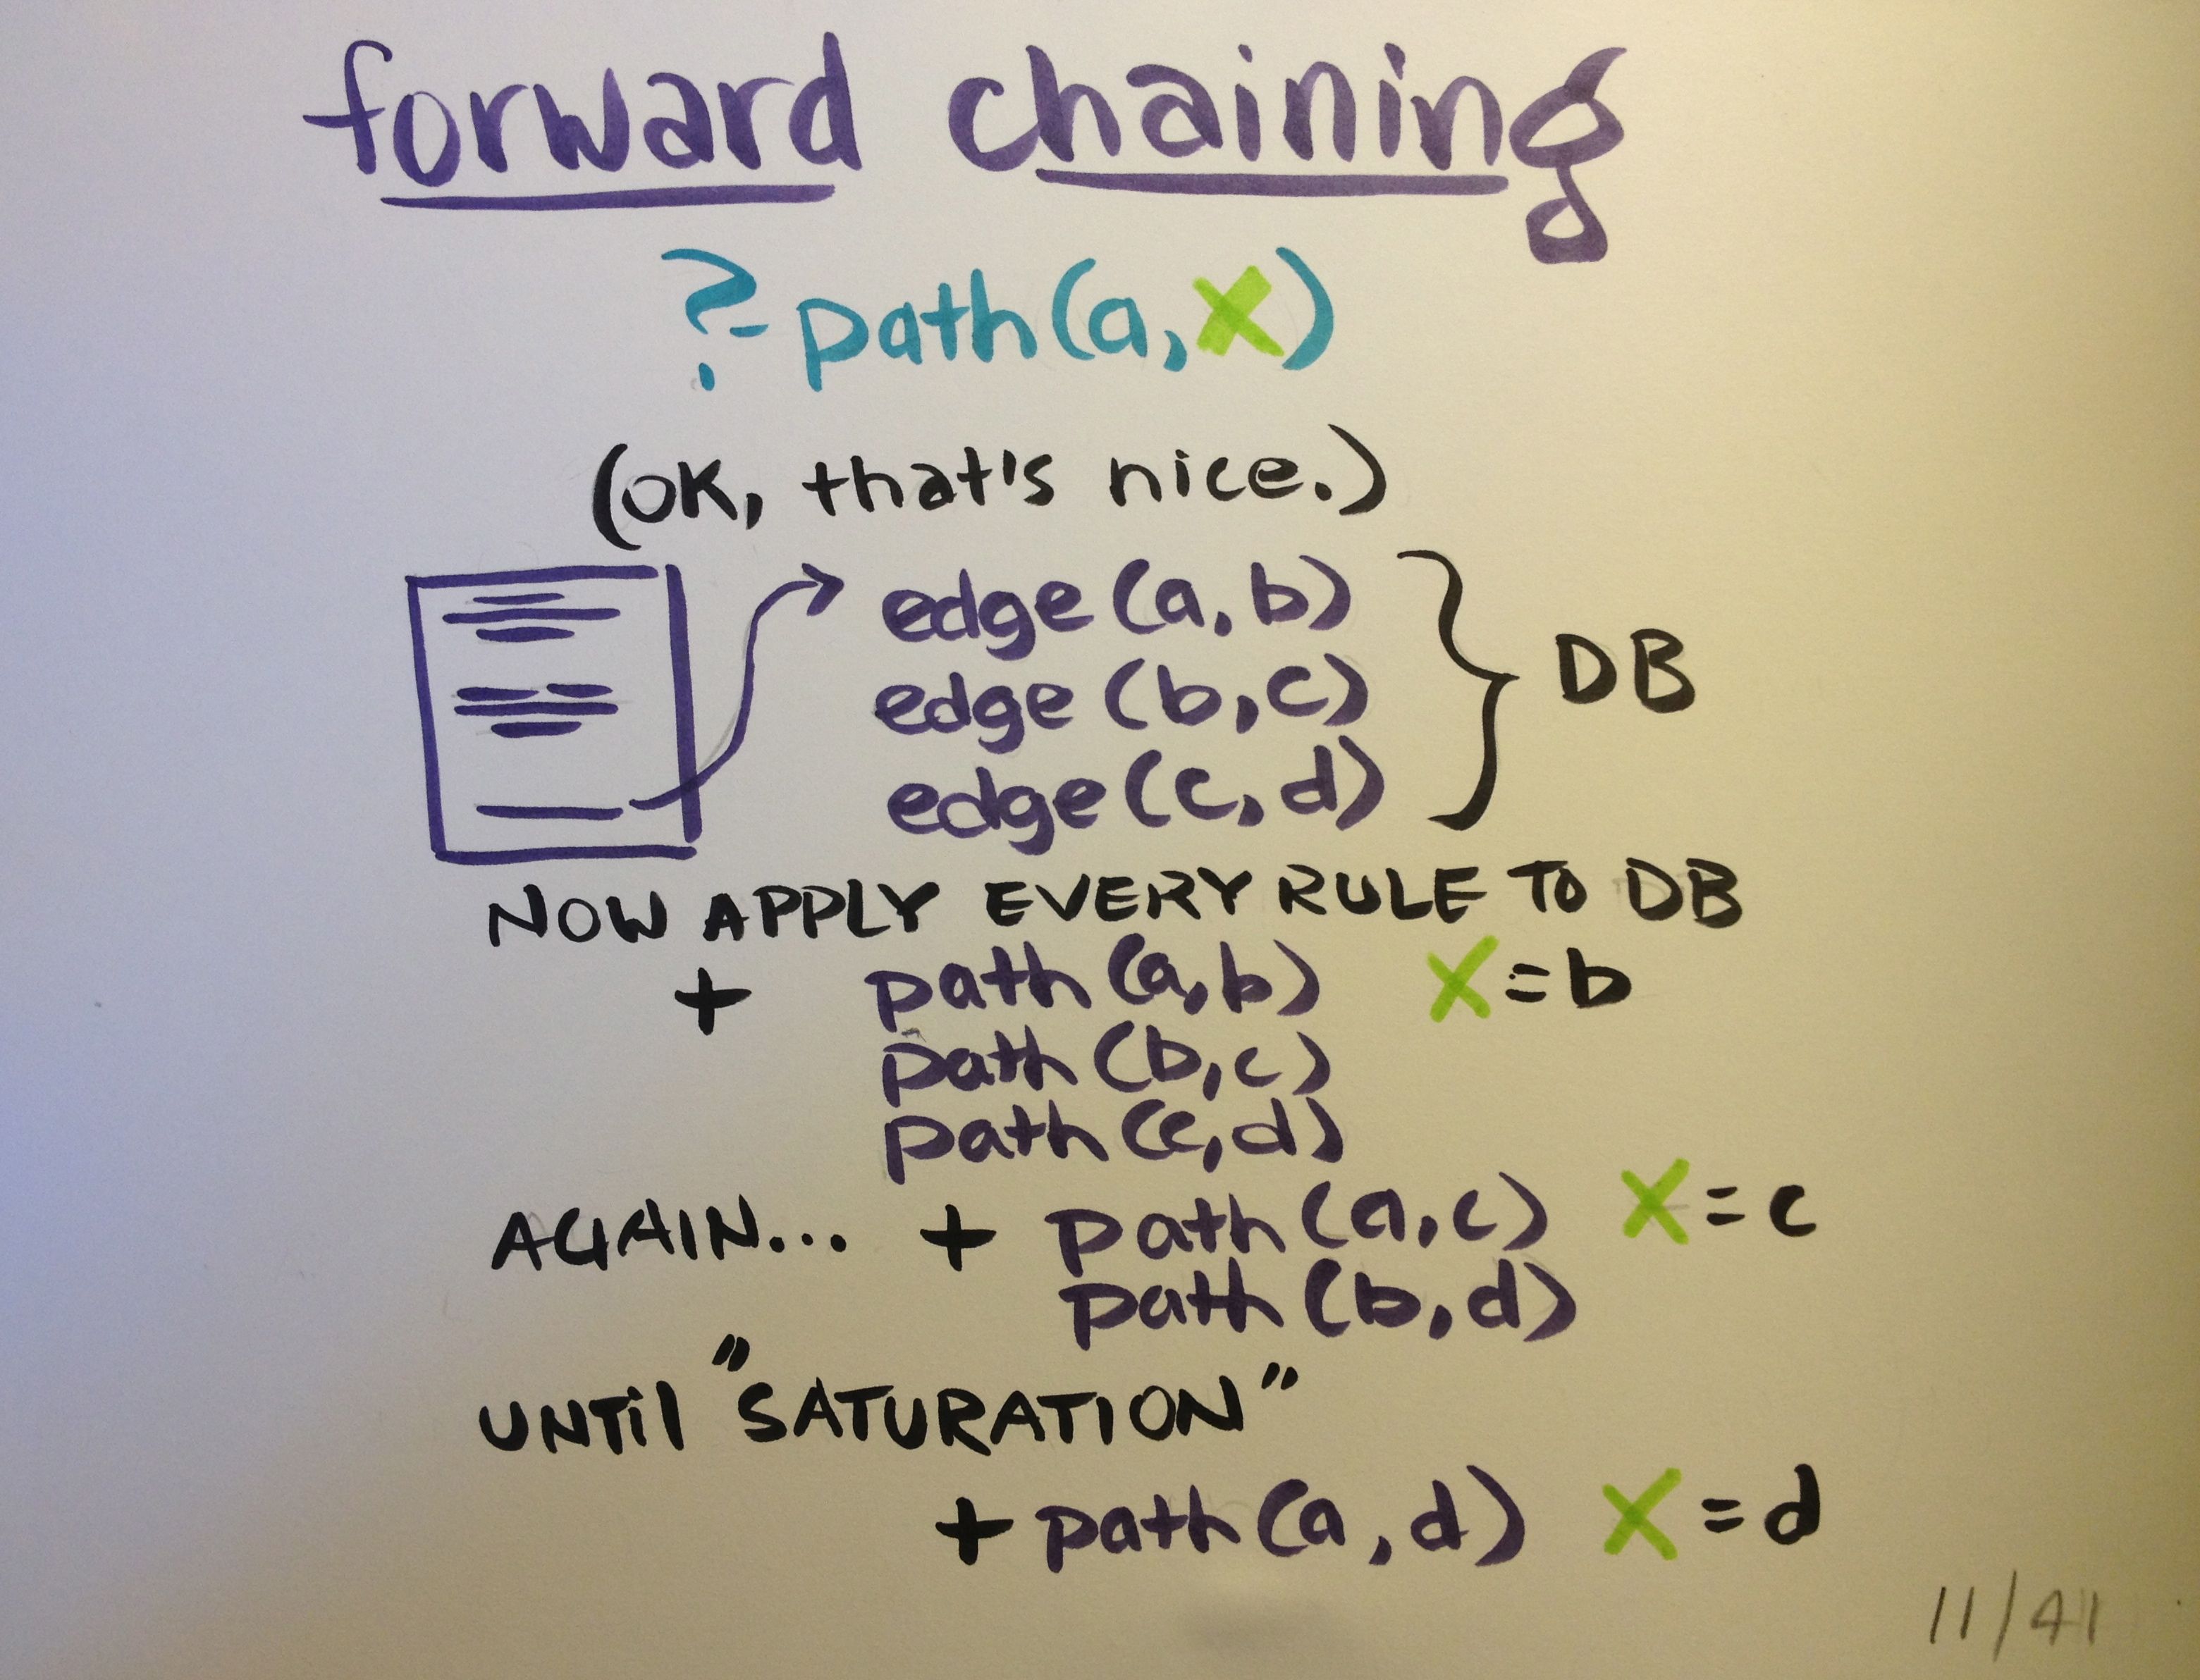 forward chaining
?- path(a,X)
(OK, that's nice.)
edge(a,b)
edge(b,c)
edge(c,d)
DB
NOW APPLY EVERY RULE TO DB
+ path(a,b) X=b
path(b,c)
path(c,d)
AGAIN... + path(a,c) X=c
path(b,d)
UNTiL "SATURATION"
+ path(a,d) X=d
11/41